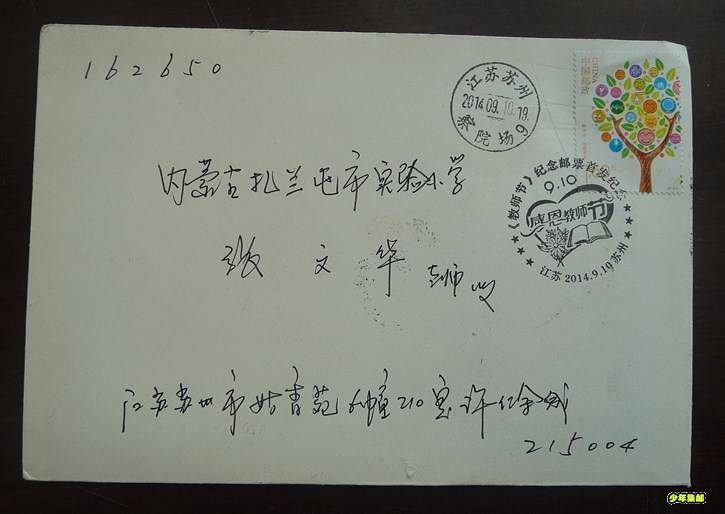 162650
CHINA
中国邮政
江苏苏州
2014.09.10.19
察院场
6
《教师节》纪念邮票首发纪念
9.10
感恩教师节
江苏 2014.9.10 苏州
内蒙古扎兰屯市实验小学
张文华 老师收
江苏苏州市姑香苑 210室
215004
少年集邮